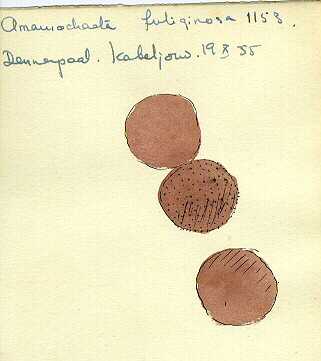 Amaurochaete fuliginosa 1153.
Dennenpad. Kabeljouw. 19 X 55